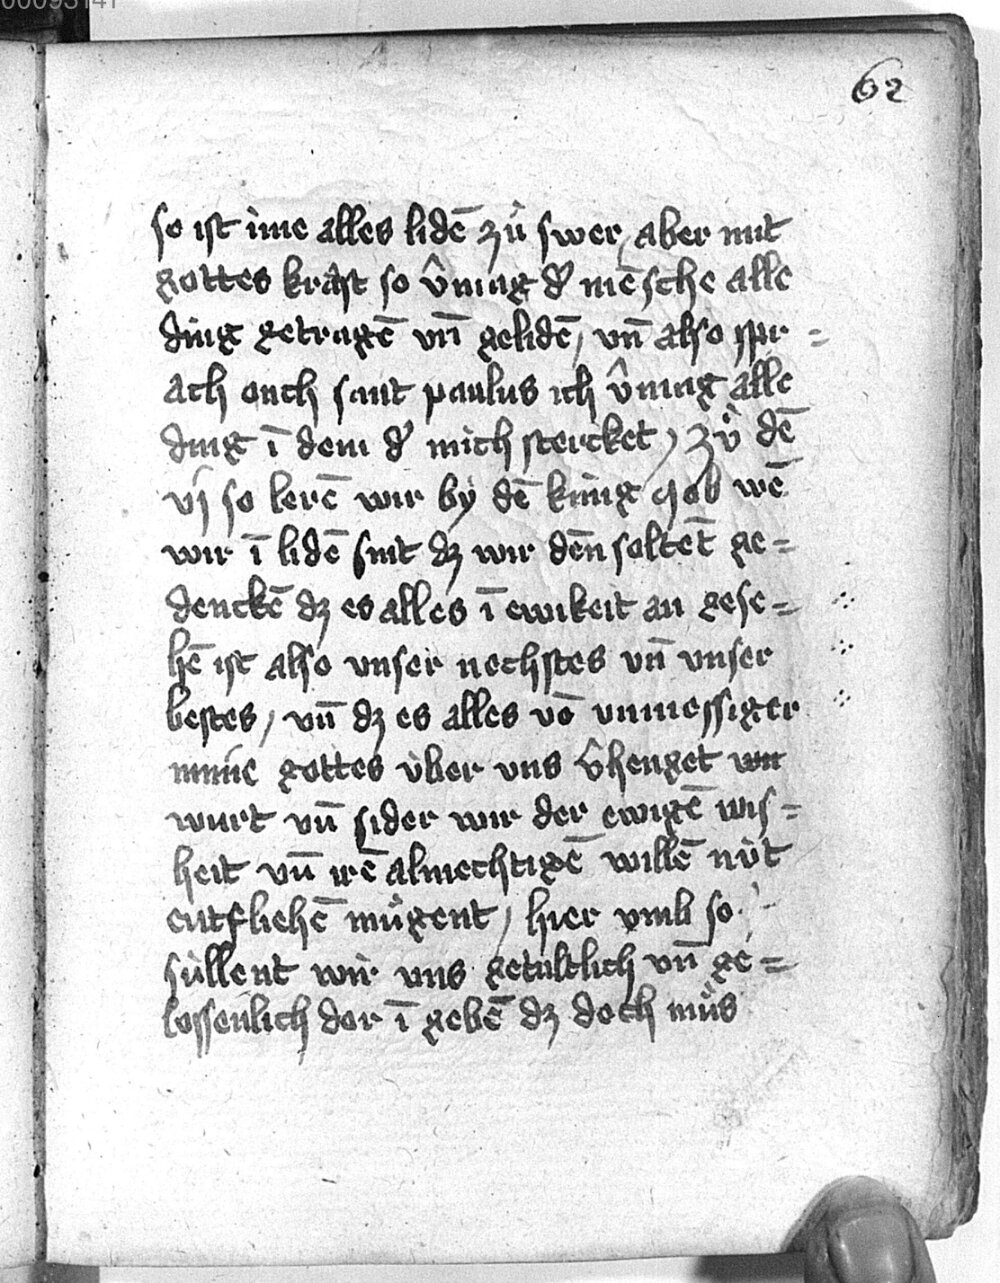 62
so ist ime alles lidē zů swer, aber mit
gottes krafft so v̂mag d' mēsche alle
ding getragē vn̄ gelidē, vn̄ also spr =
ach ouch sant paulus ich v̂mag alle
ding ī dem d' mich stercket, zů dē
vj so lerē wir by dē küng job wē
wir ī lidē sint dz wir dēn soltēt ge =
denckē dz es alles ī ewikeit an gese =
hē ist also vnser nechstes vn̄ vnser
bestes, vn̄ dz es alles vō vnmessiger
mine gottes über vns v̂henget
wurt vn̄ sider wir der ewigē wis =
heit vn̄ irē almechtigē willē nüt
entfliehē mügent, hier vmb so
süllent wir vns getultlich vn̄ ge =
lossenlich dar ī gebē dz doch můs